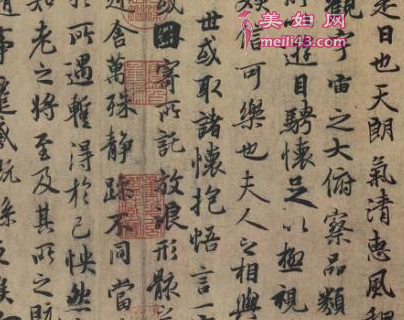 美妇网
meili43.com
是日也天朗氣清惠風
觀宇宙之大俯察品類
遊目騁懷足以極視
娛信可樂也夫人之相與
世或取諸懷抱悟言一
或因寄所託放浪形骸
舍萬殊靜躁不同當
於所遇暫得於己怏然
知老之將至及其所之既
事遷感慨係之矣